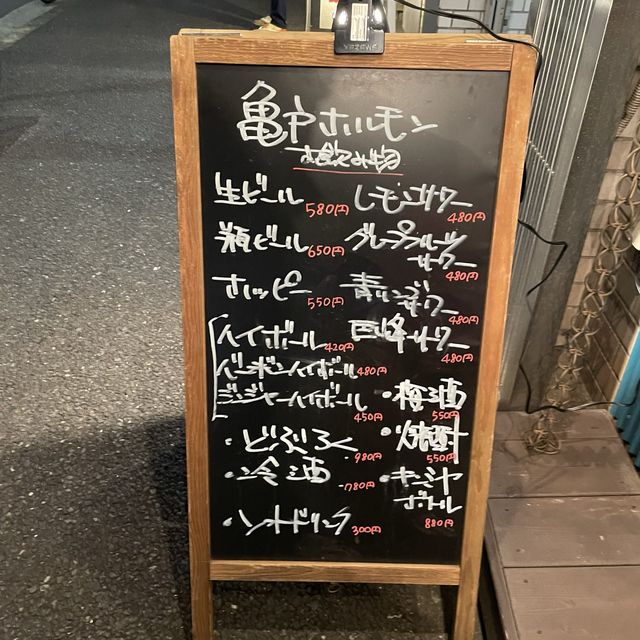 亀戸ホルモン
お飲み物
生ビール 580円
瓶ビール 650円
ホッピー 550円
ハイボール 420円
バーボンハイボール 480円
ジンジャーハイボール 450円
・どぶろく 980円
・冷酒 780円
・ソフトドリンク 300円
レモンサワー 480円
グレープフルーツ
サワー 480円
青リンゴ
サワー 480円
巨峰サワー 480円
・梅酒 550円
・焼酎 550円
・キンミヤ
ボトル 880円